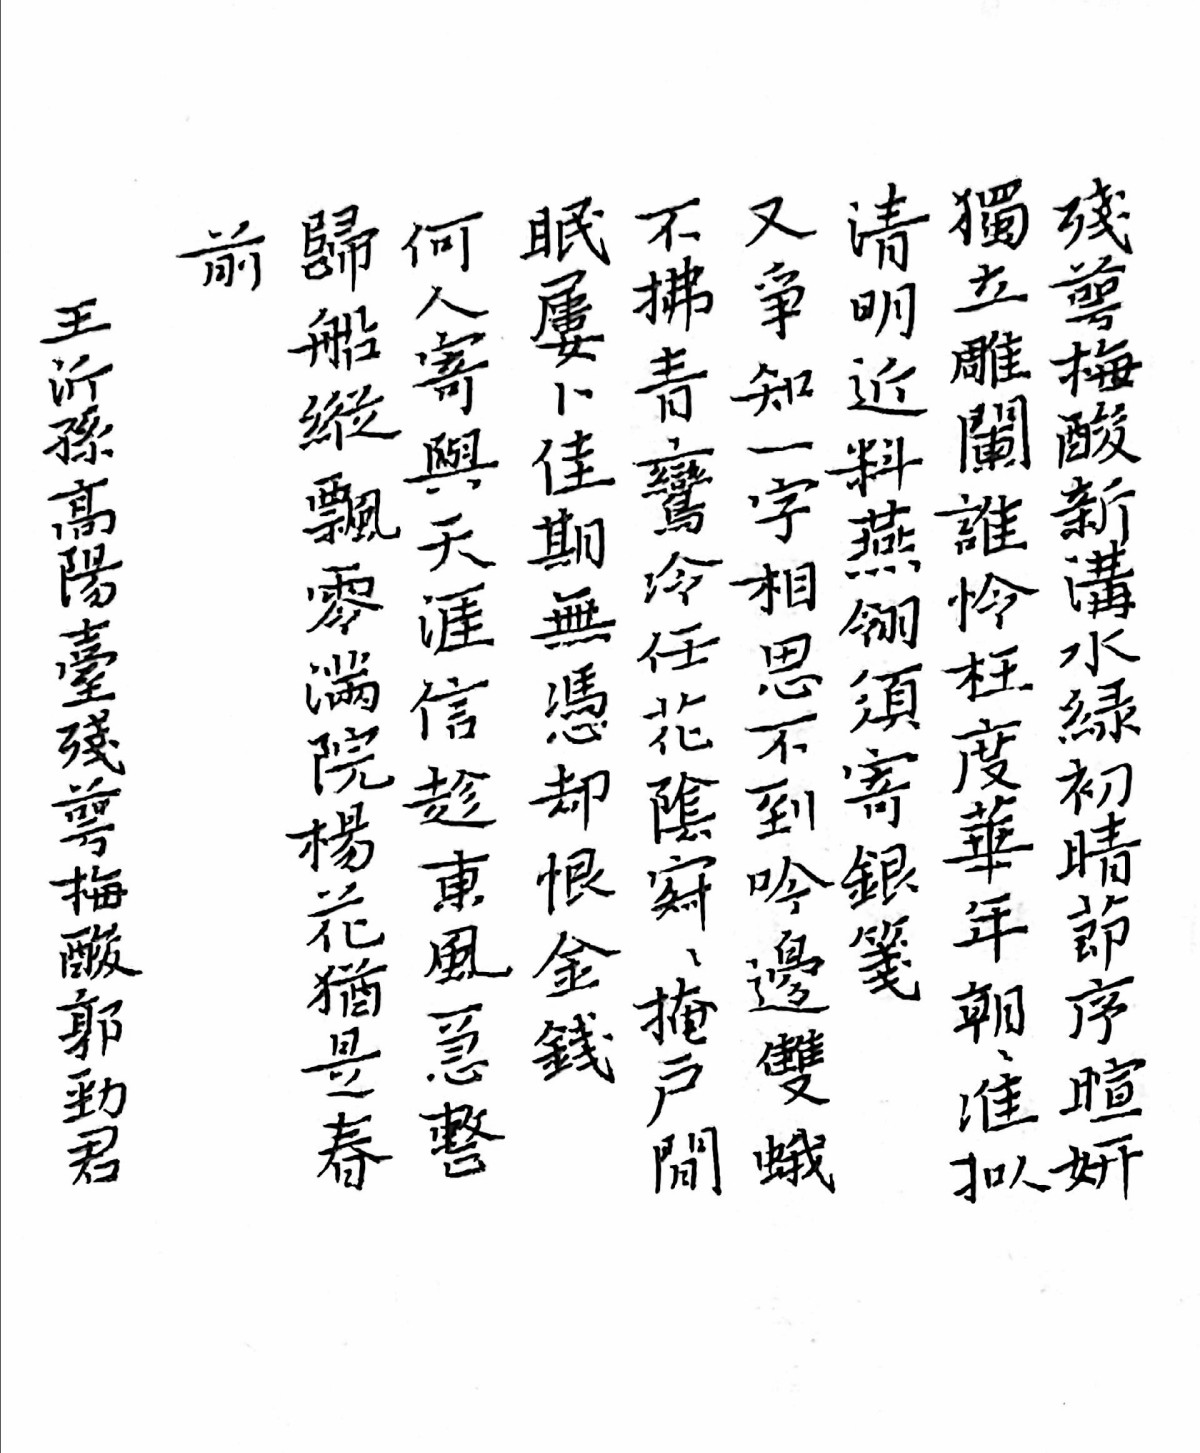 殘萼梅酸新溝水緑初晴節序暄妍
獨立雕闌誰怜枉度華年朝〻准拟
清明近料燕翎須寄銀箋
又爭知一字相思不到吟邊雙蛾
不拂青鸞冷任花陰寂〻掩戶閒
眠屢卜佳期無憑却恨金錢
何人寄與天涯信趁東風急整
歸船縱飄零滿院楊花猶是春
前
王沂孫高陽臺殘萼梅酸郭勁君